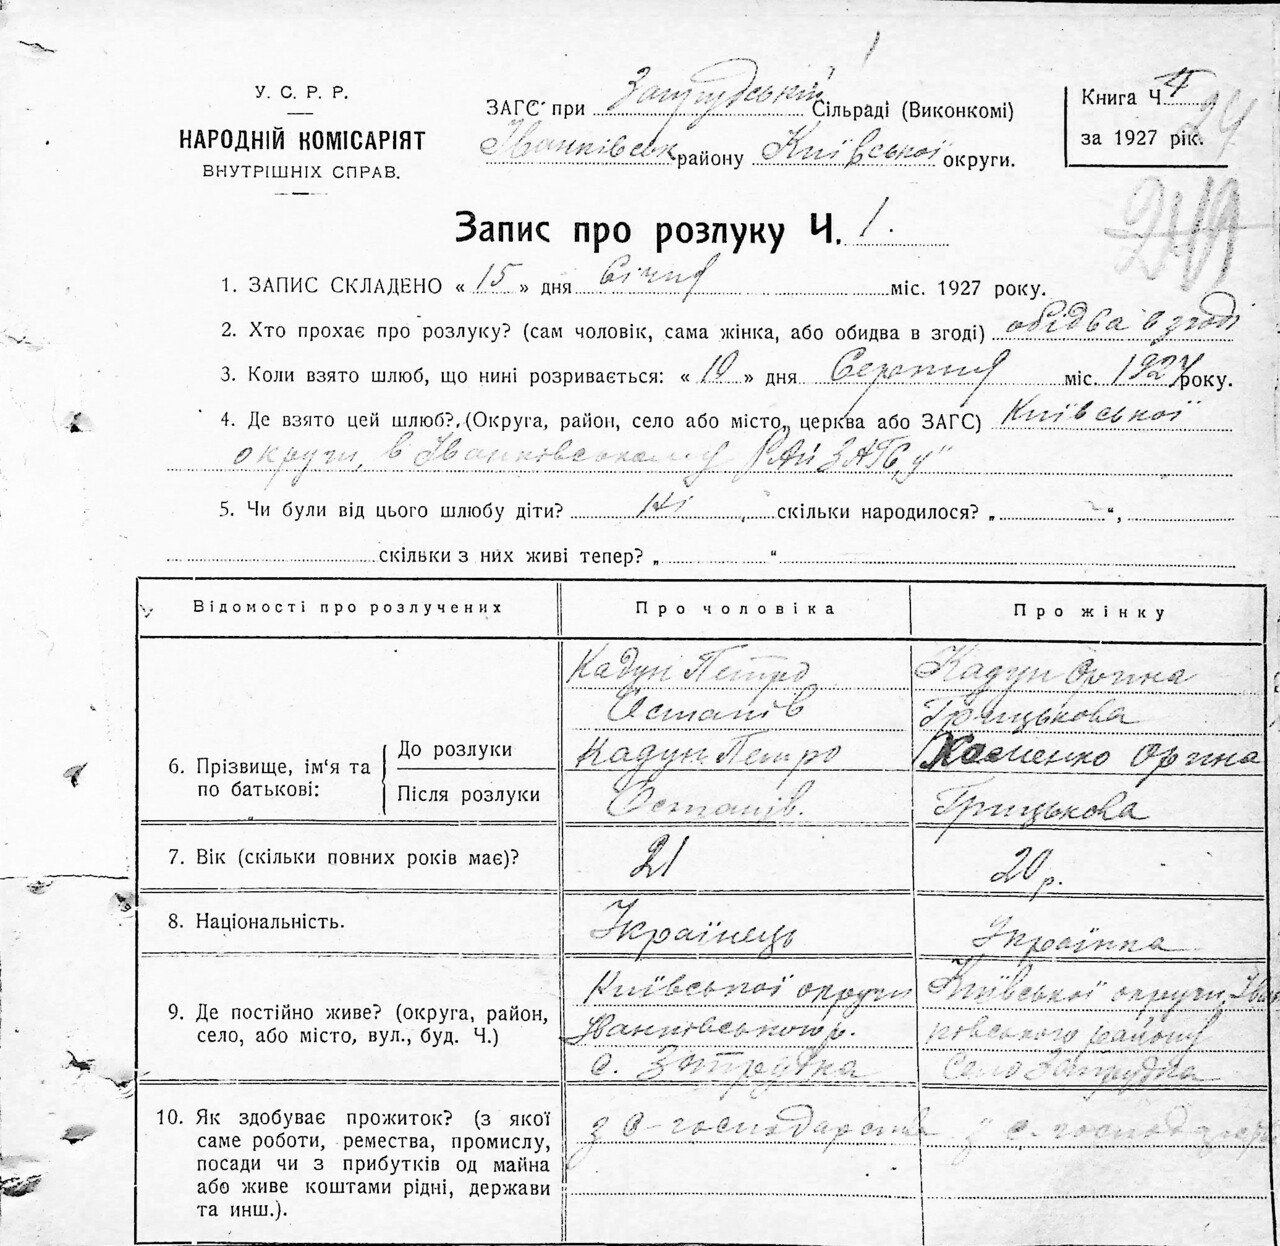 1
У. С. Р. Р.
НАРОДНІЙ КОМІСАРІЯТ
ВНУТРІШНІХ СПРАВ.
ЗАГС при Затрудській Сільраді (Виконкомі)
Іванківськ району Київської округи.
Книга Ч.
за 1927 рік.
24
Запис про розлуку Ч. 1.
1. ЗАПИС СКЛАДЕНО « 15 » дня Січня міс. 1927 року.
2. Хто прохає про розлуку? (сам чоловік, сама жінка, або обидва в згоді) обідва в згоді
3. Коли взято шлюб, що нині розривається: « 10 » дня Серпня міс. 1924 року.
4. Де взято цей шлюб? (Округа, район, село або місто, церква або ЗАГС) Київської
округи, в Іванковському Рай ЗАГС,у"
5. Чи були від цього шлюбу діти? ні скільки народилося? „ “,
скільки з них живі тепер? „ “
Відомості про розлучених
Про чоловіка
Про жінку
6. Прізвище, ім‘я та по батькові:
До розлуки
Кадун Петро
Остапів
Кадун Орина
Грицькова
Після розлуки
Кадун Петро
Остапів.
Орина
Грицькова
7. Вік (скільки повних років має)?
21
20 р.
8. Національність.
Українець
Українка
9. Де постійно живе? (округа, район,
село, або місто, вул., буд. Ч.)
Київської округи
Іванковського р.
с. Затрудка
Київської округи, Іван
ковського району
Село Затрудка
10. Як здобуває прожиток? (з якої
саме роботи, ремества, промислу,
посади чи з прибутків од майна
або живе коштами рідні, держави
та инш.).
з с-господарства
з с. господар